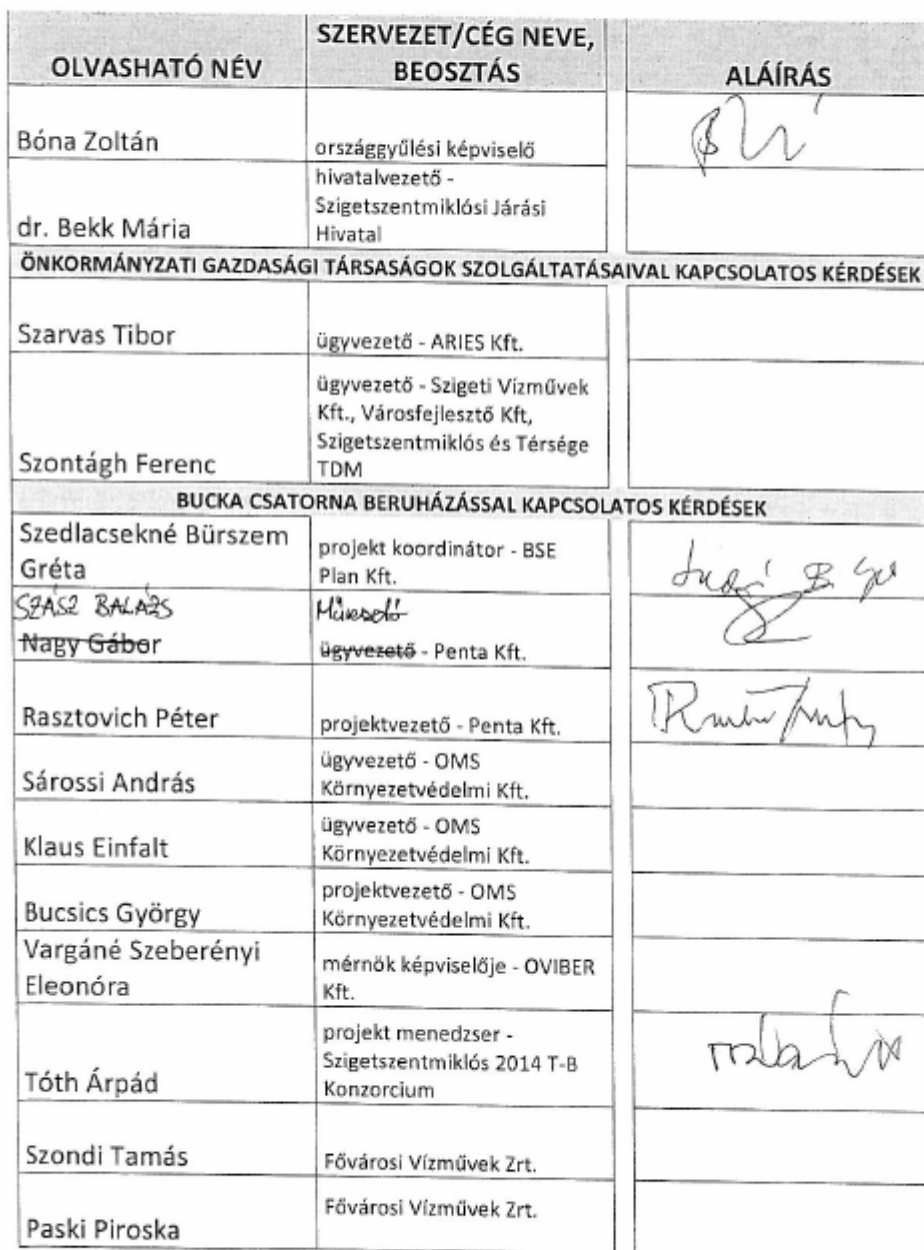 OLVASHATÓ NÉV
SZERVEZET/CÉG NEVE,
BEOSZTÁS
ALÁÍRÁS
Bóna Zoltán
országgyűlési képviselő
dr. Bekk Mária
hivatalvezető -
Szigetszentmiklósi Járási
Hivatal
ÖNKORMÁNYZATI GAZDASÁGI TÁRSASÁGOK SZOLGÁLTATÁSAIVAL KAPCSOLATOS KÉRDÉSEK
Szarvas Tibor
ügyvezető - ARIES Kft.
Szontágh Ferenc
ügyvezető - Szigeti Vízművek
Kft., Városfejlesztő Kft,
Szigetszentmiklós és Térsége
TDM
BUCKA CSATORNA BERUHÁZÁSSAL KAPCSOLATOS KÉRDÉSEK
Szedlacsekné Bürszem
Gréta
projekt koordinátor - BSE
Plan Kft.
SZÁSZ BALÁZS
Nagy Gábor
ügyvezető - Penta Kft.
Rasztovich Péter
projektvezető - Penta Kft.
Sárossi András
ügyvezető - OMS
Környezetvédelmi Kft.
Klaus Einfalt
ügyvezető - OMS
Környezetvédelmi Kft.
Bucsics György
projektvezető - OMS
Környezetvédelmi Kft.
Vargáné Szeberényi
Eleonóra
mérnök képviselője - OVIBER
Kft.
Tóth Árpád
projekt menedzser -
Szigetszentmiklós 2014 T-B
Konzorcium
Szondi Tamás
Fővárosi Vízművek Zrt.
Paski Piroska
Fővárosi Vízművek Zrt.